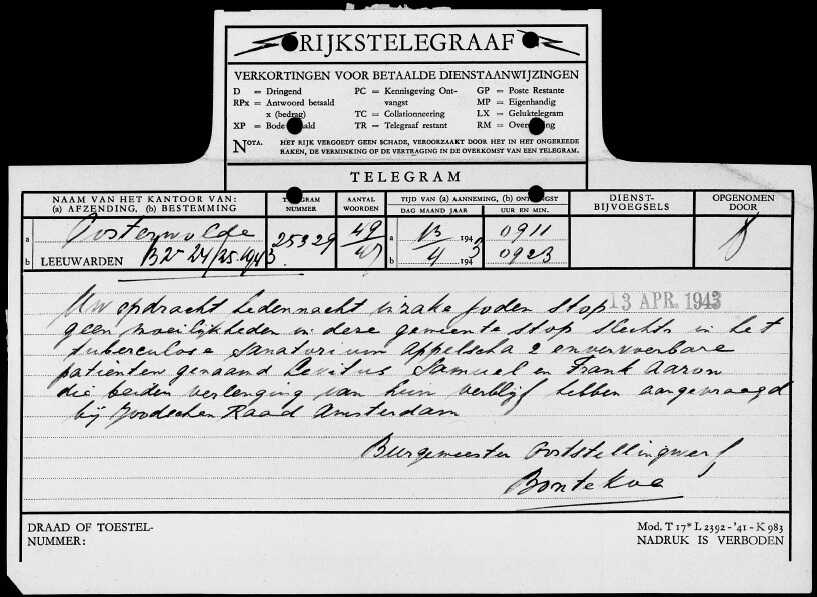 RIJKSTELEGRAAF
VERKORTINGEN VOOR BETAALDE DIENSTAANWIJZINGEN
D = Dringend PC = Kennisgeving Ont- GP = Poste Restante
RPx = Antwoord betaald vangst MP = Eigenhandig
x (bedrag) TC = Collationneering LX = Geluktelegram
XP = Bode TR = Telegraaf restant RM =
NOTA. HET RIJK VERGOEDT GEEN SCHADE, VEROORZAAKT DOOR HET IN HET ONGEREEDE
RAKEN, DE VERMINKING OF DE VERTRAGING IN DE OVERKOMST VAN EEN TELEGRAM.
TELEGRAM
NAAM VAN HET KANTOOR VAN: TELEGRAM AANTAL TIJD VAN (a) AANNEMING, (b) ONTVANGST DIENST- OPGENOMEN
(a) AFZENDING, (b) BESTEMMING NUMMER WOORDEN DAG MAAND JAAR UUR EN MIN. BIJVOEGSELS DOOR
a Oosterwolde 25329 49/47 a 13 1943 0911
b LEEUWARDEN B2- 24/25-1943. b 4 1943 0923
13 APR. 1943
Uw opdracht hedennacht inzake joden stop
geen moeilijkheden in deze gemeente stop slechts in het
tuberculose sanatorium Appelscha 2 onvervoerbare
patienten genaamd Levitus Samuel en Frank Aaron
die beiden verlenging van hun verblijf hebben aangevraagd
bij Joodschen Raad Amsterdam
Burgemeester Ooststellingwerf
Bontekoe
DRAAD OF TOESTEL-
NUMMER:
Mod. T 17* L 2392 - '41 - K 983
NADRUK IS VERBODEN